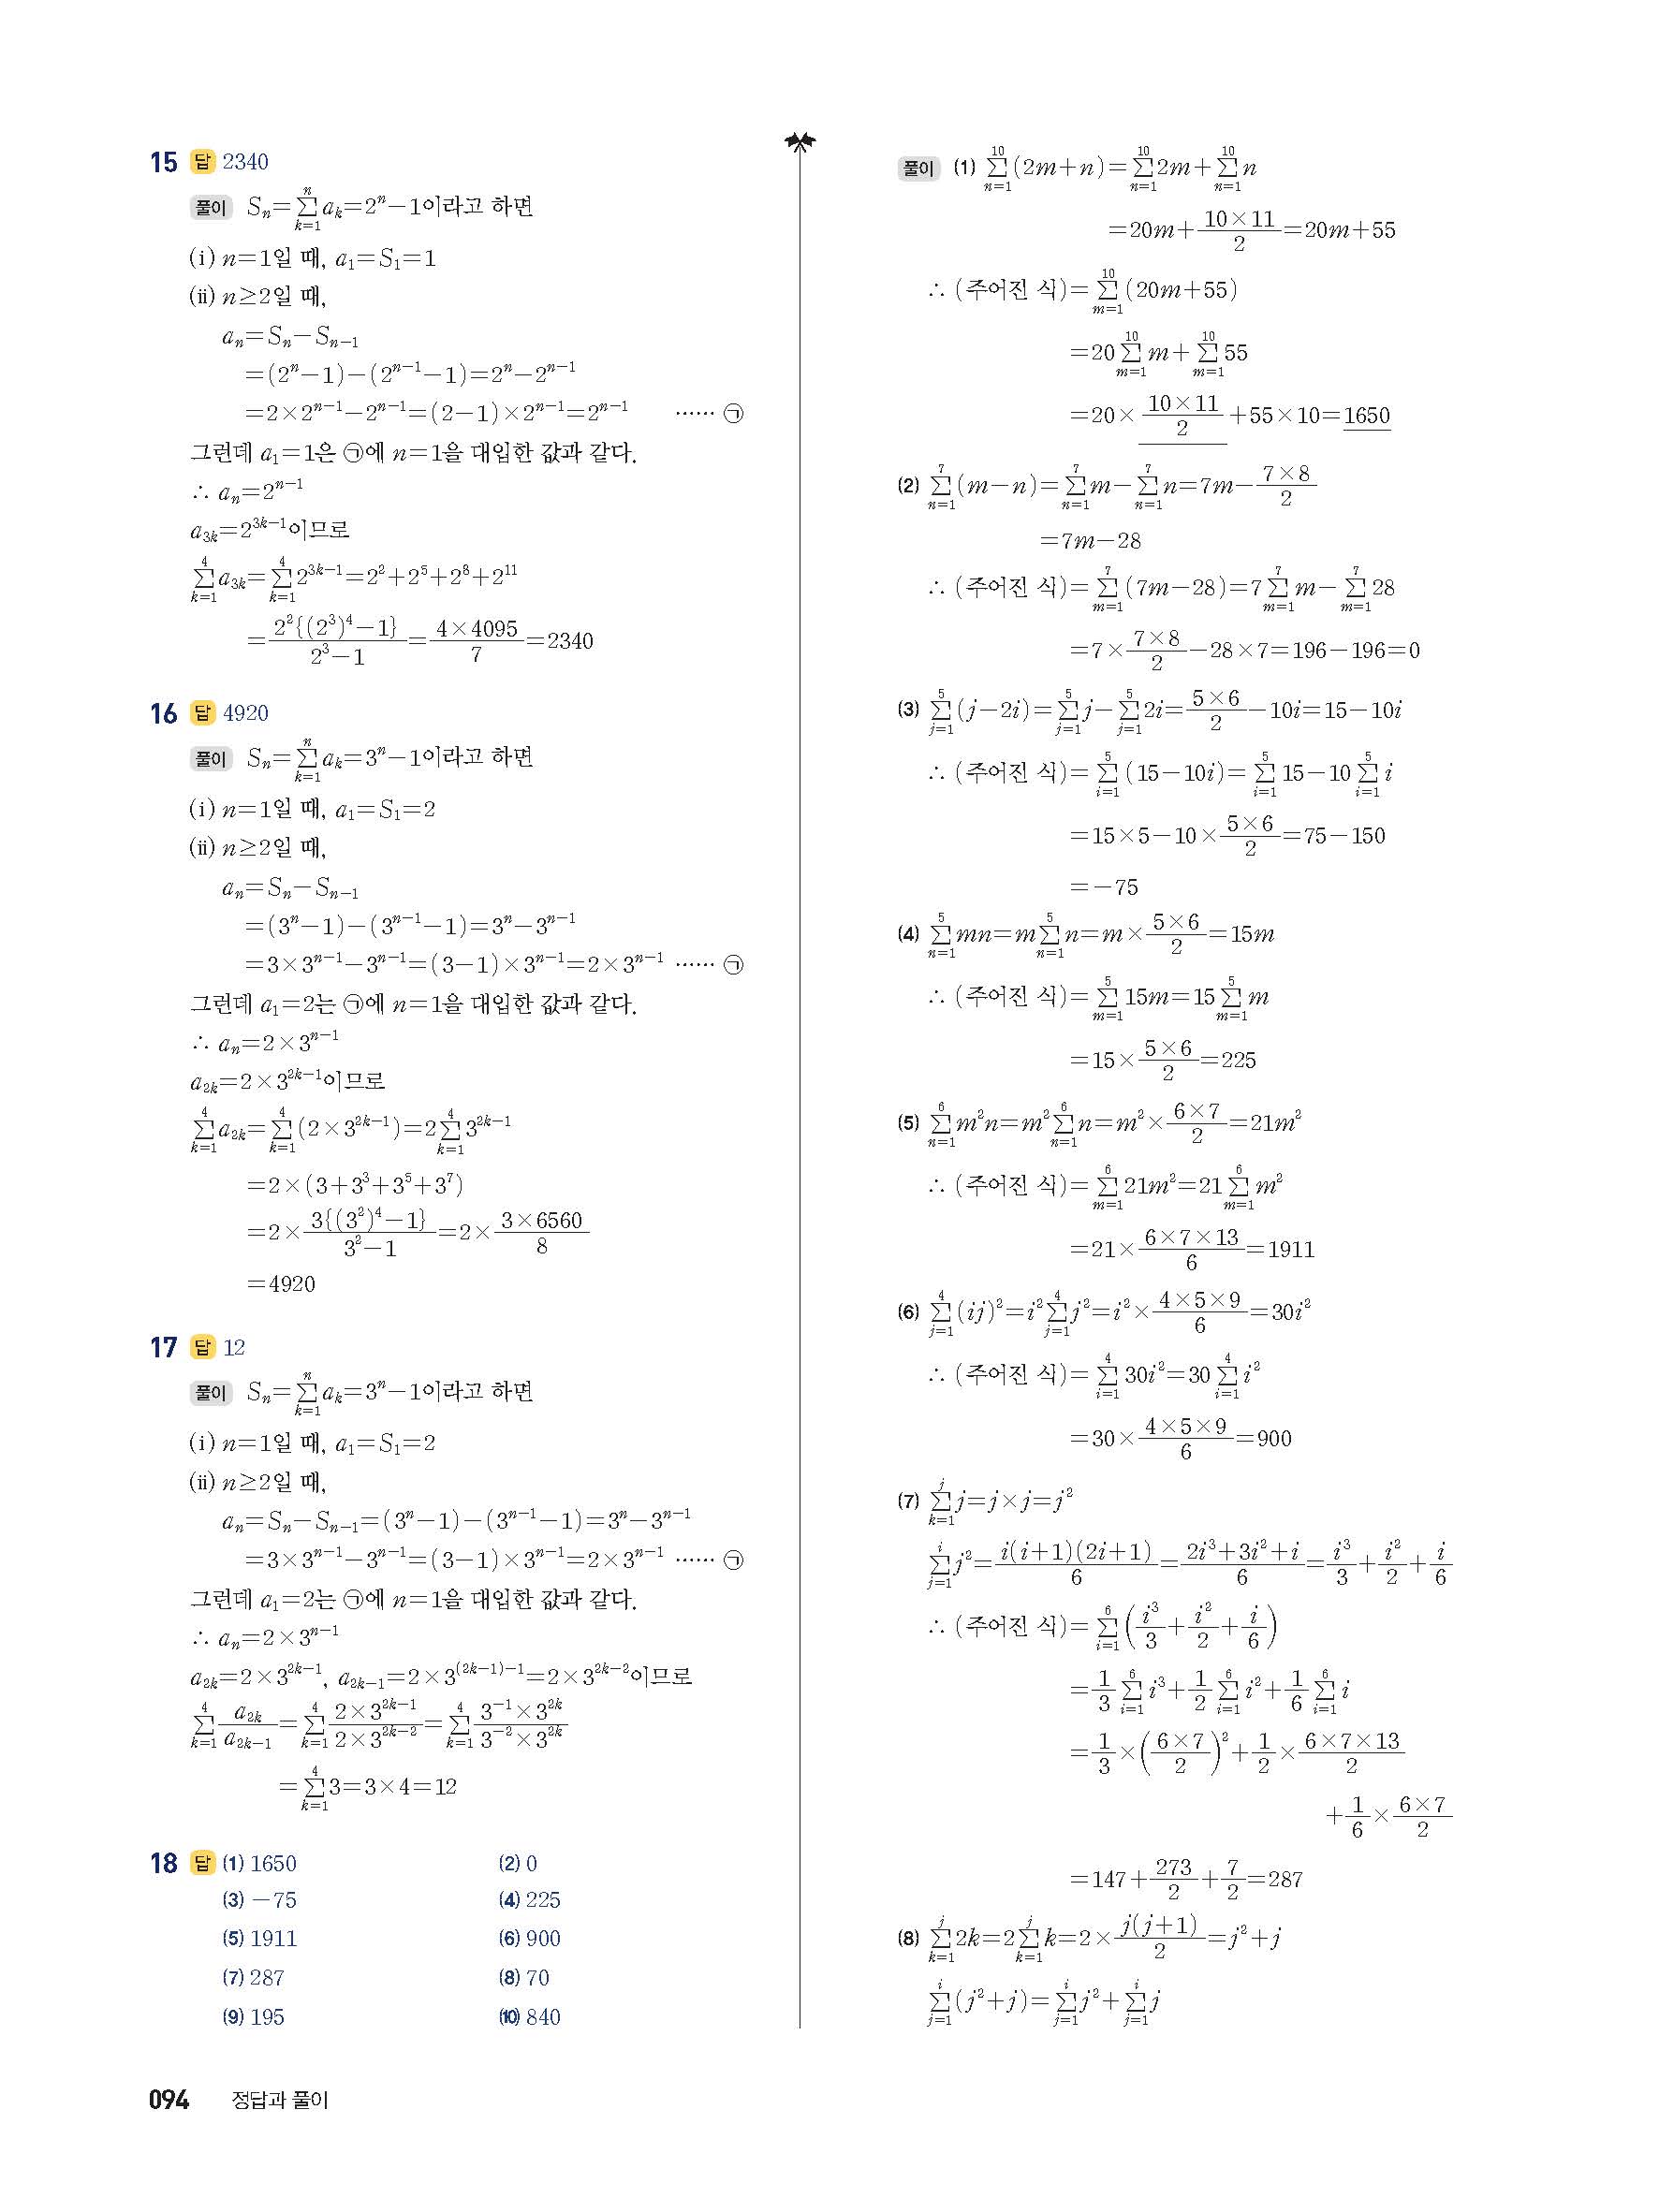 15 답 2340
풀이 Sₙ=∑ₖ₌₁ⁿ aₖ=2ⁿ−1이라고 하면
(ⅰ) n=1일 때, a₁=S₁=1
(ⅱ) n≥2일 때,
aₙ=Sₙ−Sₙ₋₁
=(2ⁿ−1)−(2ⁿ⁻¹−1)=2ⁿ−2ⁿ⁻¹
=2×2ⁿ⁻¹−2ⁿ⁻¹=(2−1)×2ⁿ⁻¹=2ⁿ⁻¹ …… ㉠
그런데 a₁=1은 ㉠에 n=1을 대입한 값과 같다.
∴ aₙ=2ⁿ⁻¹
a₃ₖ=2³ᵏ⁻¹이므로
∑ₖ₌₁⁴ a₃ₖ=∑ₖ₌₁⁴ 2³ᵏ⁻¹=2²+2⁵+2⁸+2¹¹
=2²{(2³)⁴−1}/(2³−1)=(4×4095)/7=2340
16 답 4920
풀이 Sₙ=∑ₖ₌₁ⁿ aₖ=3ⁿ−1이라고 하면
(ⅰ) n=1일 때, a₁=S₁=2
(ⅱ) n≥2일 때,
aₙ=Sₙ−Sₙ₋₁
=(3ⁿ−1)−(3ⁿ⁻¹−1)=3ⁿ−3ⁿ⁻¹
=3×3ⁿ⁻¹−3ⁿ⁻¹=(3−1)×3ⁿ⁻¹=2×3ⁿ⁻¹ …… ㉠
그런데 a₁=2는 ㉠에 n=1을 대입한 값과 같다.
∴ aₙ=2×3ⁿ⁻¹
a₂ₖ=2×3²ᵏ⁻¹이므로
∑ₖ₌₁⁴ a₂ₖ=∑ₖ₌₁⁴ (2×3²ᵏ⁻¹)=2∑ₖ₌₁⁴ 3²ᵏ⁻¹
=2×(3+3³+3⁵+3⁷)
=2×3{(3²)⁴−1}/(3²−1)=2×(3×6560)/8
=4920
17 답 12
풀이 Sₙ=∑ₖ₌₁ⁿ aₖ=3ⁿ−1이라고 하면
(ⅰ) n=1일 때, a₁=S₁=2
(ⅱ) n≥2일 때,
aₙ=Sₙ−Sₙ₋₁=(3ⁿ−1)−(3ⁿ⁻¹−1)=3ⁿ−3ⁿ⁻¹
=3×3ⁿ⁻¹−3ⁿ⁻¹=(3−1)×3ⁿ⁻¹=2×3ⁿ⁻¹ …… ㉠
그런데 a₁=2는 ㉠에 n=1을 대입한 값과 같다.
∴ aₙ=2×3ⁿ⁻¹
a₂ₖ=2×3²ᵏ⁻¹, a₂ₖ₋₁=2×3⁽²ᵏ⁻¹⁾⁻¹=2×3²ᵏ⁻²이므로
∑ₖ₌₁⁴ a₂ₖ/a₂ₖ₋₁=∑ₖ₌₁⁴ (2×3²ᵏ⁻¹)/(2×3²ᵏ⁻²)=∑ₖ₌₁⁴ (3⁻¹×3²ᵏ)/(3⁻²×3²ᵏ)
=∑ₖ₌₁⁴ 3=3×4=12
18 답 (1) 1650 (2) 0
(3) −75 (4) 225
(5) 1911 (6) 900
(7) 287 (8) 70
(9) 195 (10) 840
풀이 (1) ∑ₙ₌₁¹⁰ (2m+n)=∑ₙ₌₁¹⁰ 2m+∑ₙ₌₁¹⁰ n
=20m+(10×11)/2=20m+55
∴ (주어진 식)=∑ₘ₌₁¹⁰ (20m+55)
=20∑ₘ₌₁¹⁰ m+∑ₘ₌₁¹⁰ 55
=20×(10×11)/2+55×10=1650
(2) ∑ₙ₌₁⁷ (m−n)=∑ₙ₌₁⁷ m−∑ₙ₌₁⁷ n=7m−(7×8)/2
=7m−28
∴ (주어진 식)=∑ₘ₌₁⁷ (7m−28)=7∑ₘ₌₁⁷ m−∑ₘ₌₁⁷ 28
=7×(7×8)/2−28×7=196−196=0
(3) ∑ⱼ₌₁⁵ (j−2i)=∑ⱼ₌₁⁵ j−∑ⱼ₌₁⁵ 2i=(5×6)/2−10i=15−10i
∴ (주어진 식)=∑ᵢ₌₁⁵ (15−10i)=∑ᵢ₌₁⁵ 15−10∑ᵢ₌₁⁵ i
=15×5−10×(5×6)/2=75−150
=−75
(4) ∑ₙ₌₁⁵ mn=m∑ₙ₌₁⁵ n=m×(5×6)/2=15m
∴ (주어진 식)=∑ₘ₌₁⁵ 15m=15∑ₘ₌₁⁵ m
=15×(5×6)/2=225
(5) ∑ₙ₌₁⁶ m²n=m²∑ₙ₌₁⁶ n=m²×(6×7)/2=21m²
∴ (주어진 식)=∑ₘ₌₁⁶ 21m²=21∑ₘ₌₁⁶ m²
=21×(6×7×13)/6=1911
(6) ∑ⱼ₌₁⁴ (ij)²=i²∑ⱼ₌₁⁴ j²=i²×(4×5×9)/6=30i²
∴ (주어진 식)=∑ᵢ₌₁⁴ 30i²=30∑ᵢ₌₁⁴ i²
=30×(4×5×9)/6=900
(7) ∑ₖ₌₁ʲ j=j×j=j²
∑ⱼ₌₁ⁱ j²=i(i+1)(2i+1)/6=(2i³+3i²+i)/6=i³/3+i²/2+i/6
∴ (주어진 식)=∑ᵢ₌₁⁶ (i³/3+i²/2+i/6)
=1/3∑ᵢ₌₁⁶ i³+1/2∑ᵢ₌₁⁶ i²+1/6∑ᵢ₌₁⁶ i
=1/3×((6×7)/2)²+1/2×(6×7×13)/2
+1/6×(6×7)/2
=147+273/2+7/2=287
(8) ∑ₖ₌₁ʲ 2k=2∑ₖ₌₁ʲ k=2×j(j+1)/2=j²+j
∑ⱼ₌₁ⁱ (j²+j)=∑ⱼ₌₁ⁱ j²+∑ⱼ₌₁ⁱ j
094 정답과 풀이